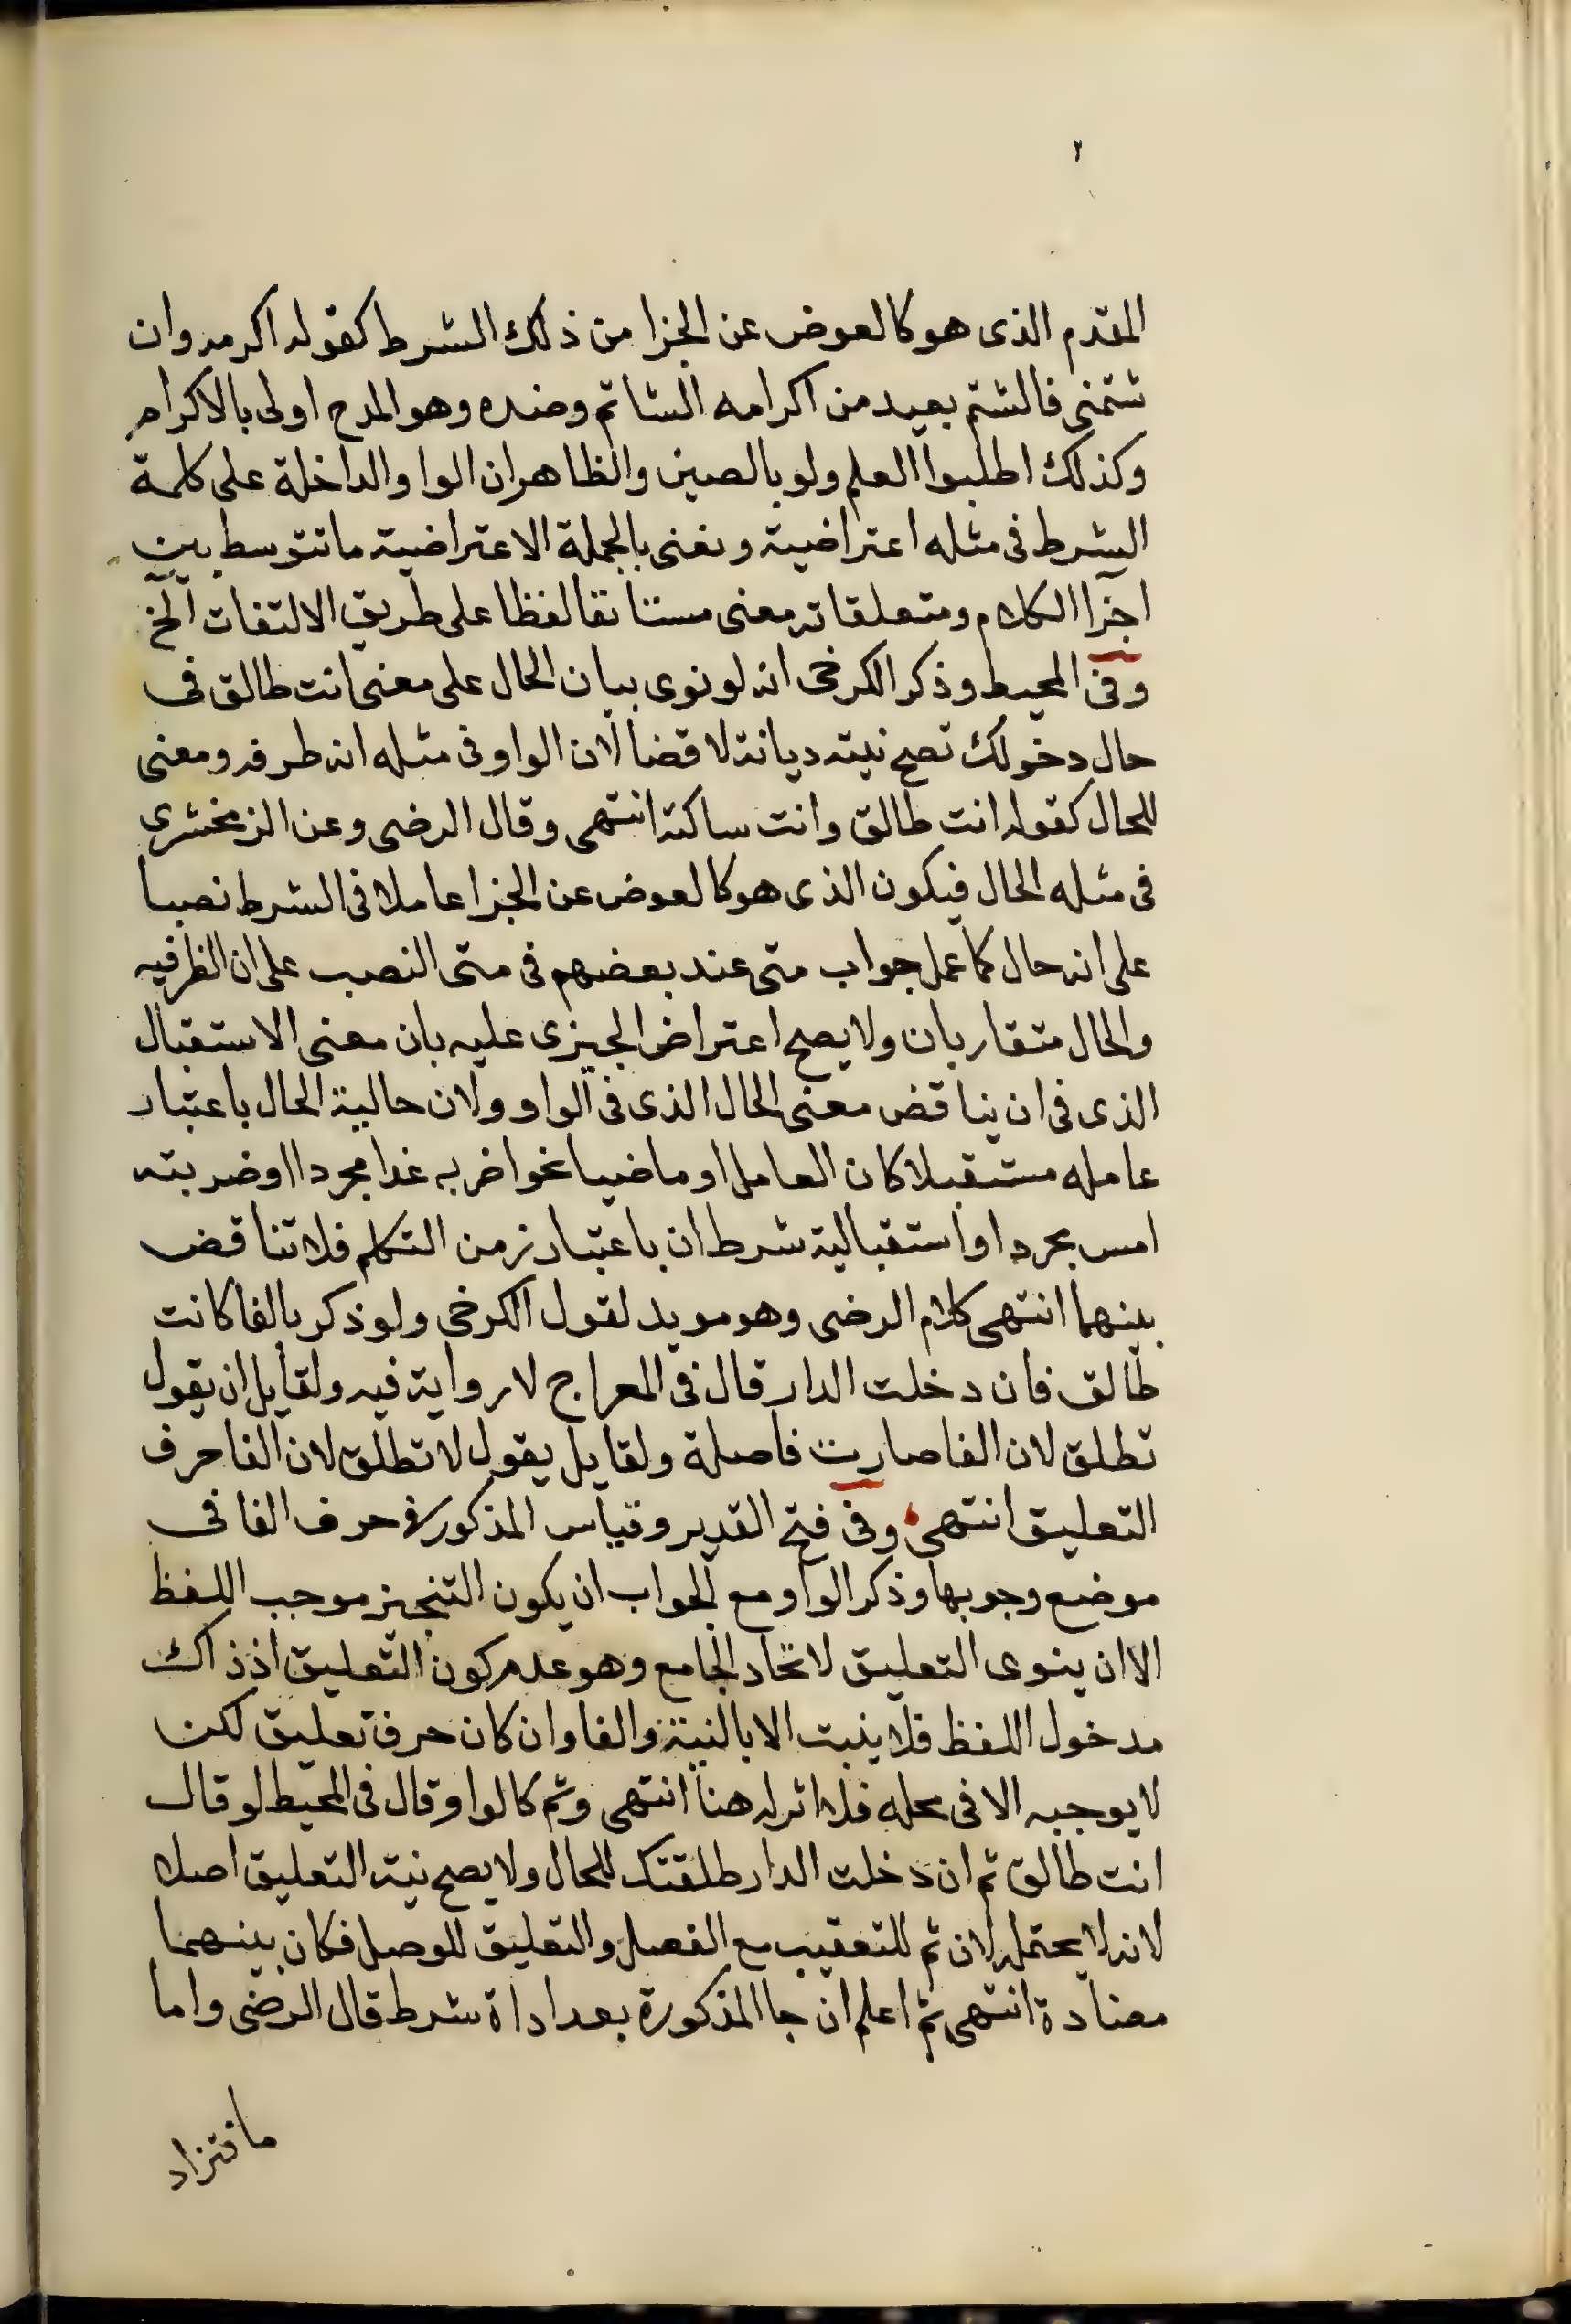 ٢
المقدم الذى هو كالعوض عن الجزا من ذلك الشرط كقوله اكرمه وان
شتمنى فالشتم بعيد من اكرامه الشاتم وضده وهو المدح اولى بالاكرام
وكذلك اطلبوا العلم ولو بالصين والظاهر ان الواو الداخلة على كلمة
الشرط فى مثله اعتراضية ونعنى بالجملة الاعتراضية ما تتوسط بين
اجزا الكلام ومتعلقاته معنى مستانفا لفظا على طريق الالتفات الخ
وفى المحيط وذكر الكرخى انه لو نوى بيان الحال على معنى انت طالق فى
حال دخولك تصح نيته ديانة لا قضا لان الواو فى مثله انه ظرفه ومعنى
للحال كقوله انت طالق وانت ساكتة انتهى وقال الرضى وعن الزمخشرى
فى مثله الحال فيكون الذى هو كالعوض عن الجزا عاملا فى الشرط نصبا
على انه حال كما عمل جواب متى عند بعضهم فى متى النصب على ان الظرفيه
والحال متقاربان ولا يصح اعتراض الجيزى عليه بان معنى الاستقبال
الذى فى ان يناقض معنى الحال الذى فى الواو ولان حالية الحال باعتبار
عامله مستقبلا كان العامل او ماضيا نحو اضربه غدا مجردا او ضربته
امس مجردا واستقبالية شرط ان باعتبار زمن التكلم فلا تناقض
بينهما انتهى كلام الرضى وهو مويد لقول الكرخى ولو ذكر بالفا كانت
طالق فان دخلت الدار قال فى المعراج لا رواية فيه ولقايل ان يقول
تطلق لان الفا صارت فاصلة ولقايل يقول لا تطلق لان الفا حرف
التعليق انتهى وفى فتح القدير وقياس المذكور فى حرف الفا فى
موضع وجوبها وذكر الواو مع الجواب ان يكون التنجيز موجب اللفظ
الا ان ينوى التعليق لاتحاد الجامع وهو عدم كون التعليق اذ ذاك
مدخول اللفظ فلا يثبت الا بالنية والفا وان كان حرف تعليق لكن
لا يوجبه الا فى محله فلا اثر له هنا انتهى وثم كالواو قال فى المحيط لو قال
انت طالق ثم ان دخلت الدار طلقتك للحال ولا يصح نية التعليق اصلا
لانه لا يحتمله لان ثم للتعقيب مع الفصل والتعليق للوصل فكان بينهما
مضادة انتهى ثم اعلم ان جا المذكورة بعد اداة شرط قال الرضى واما
ما تتزاد